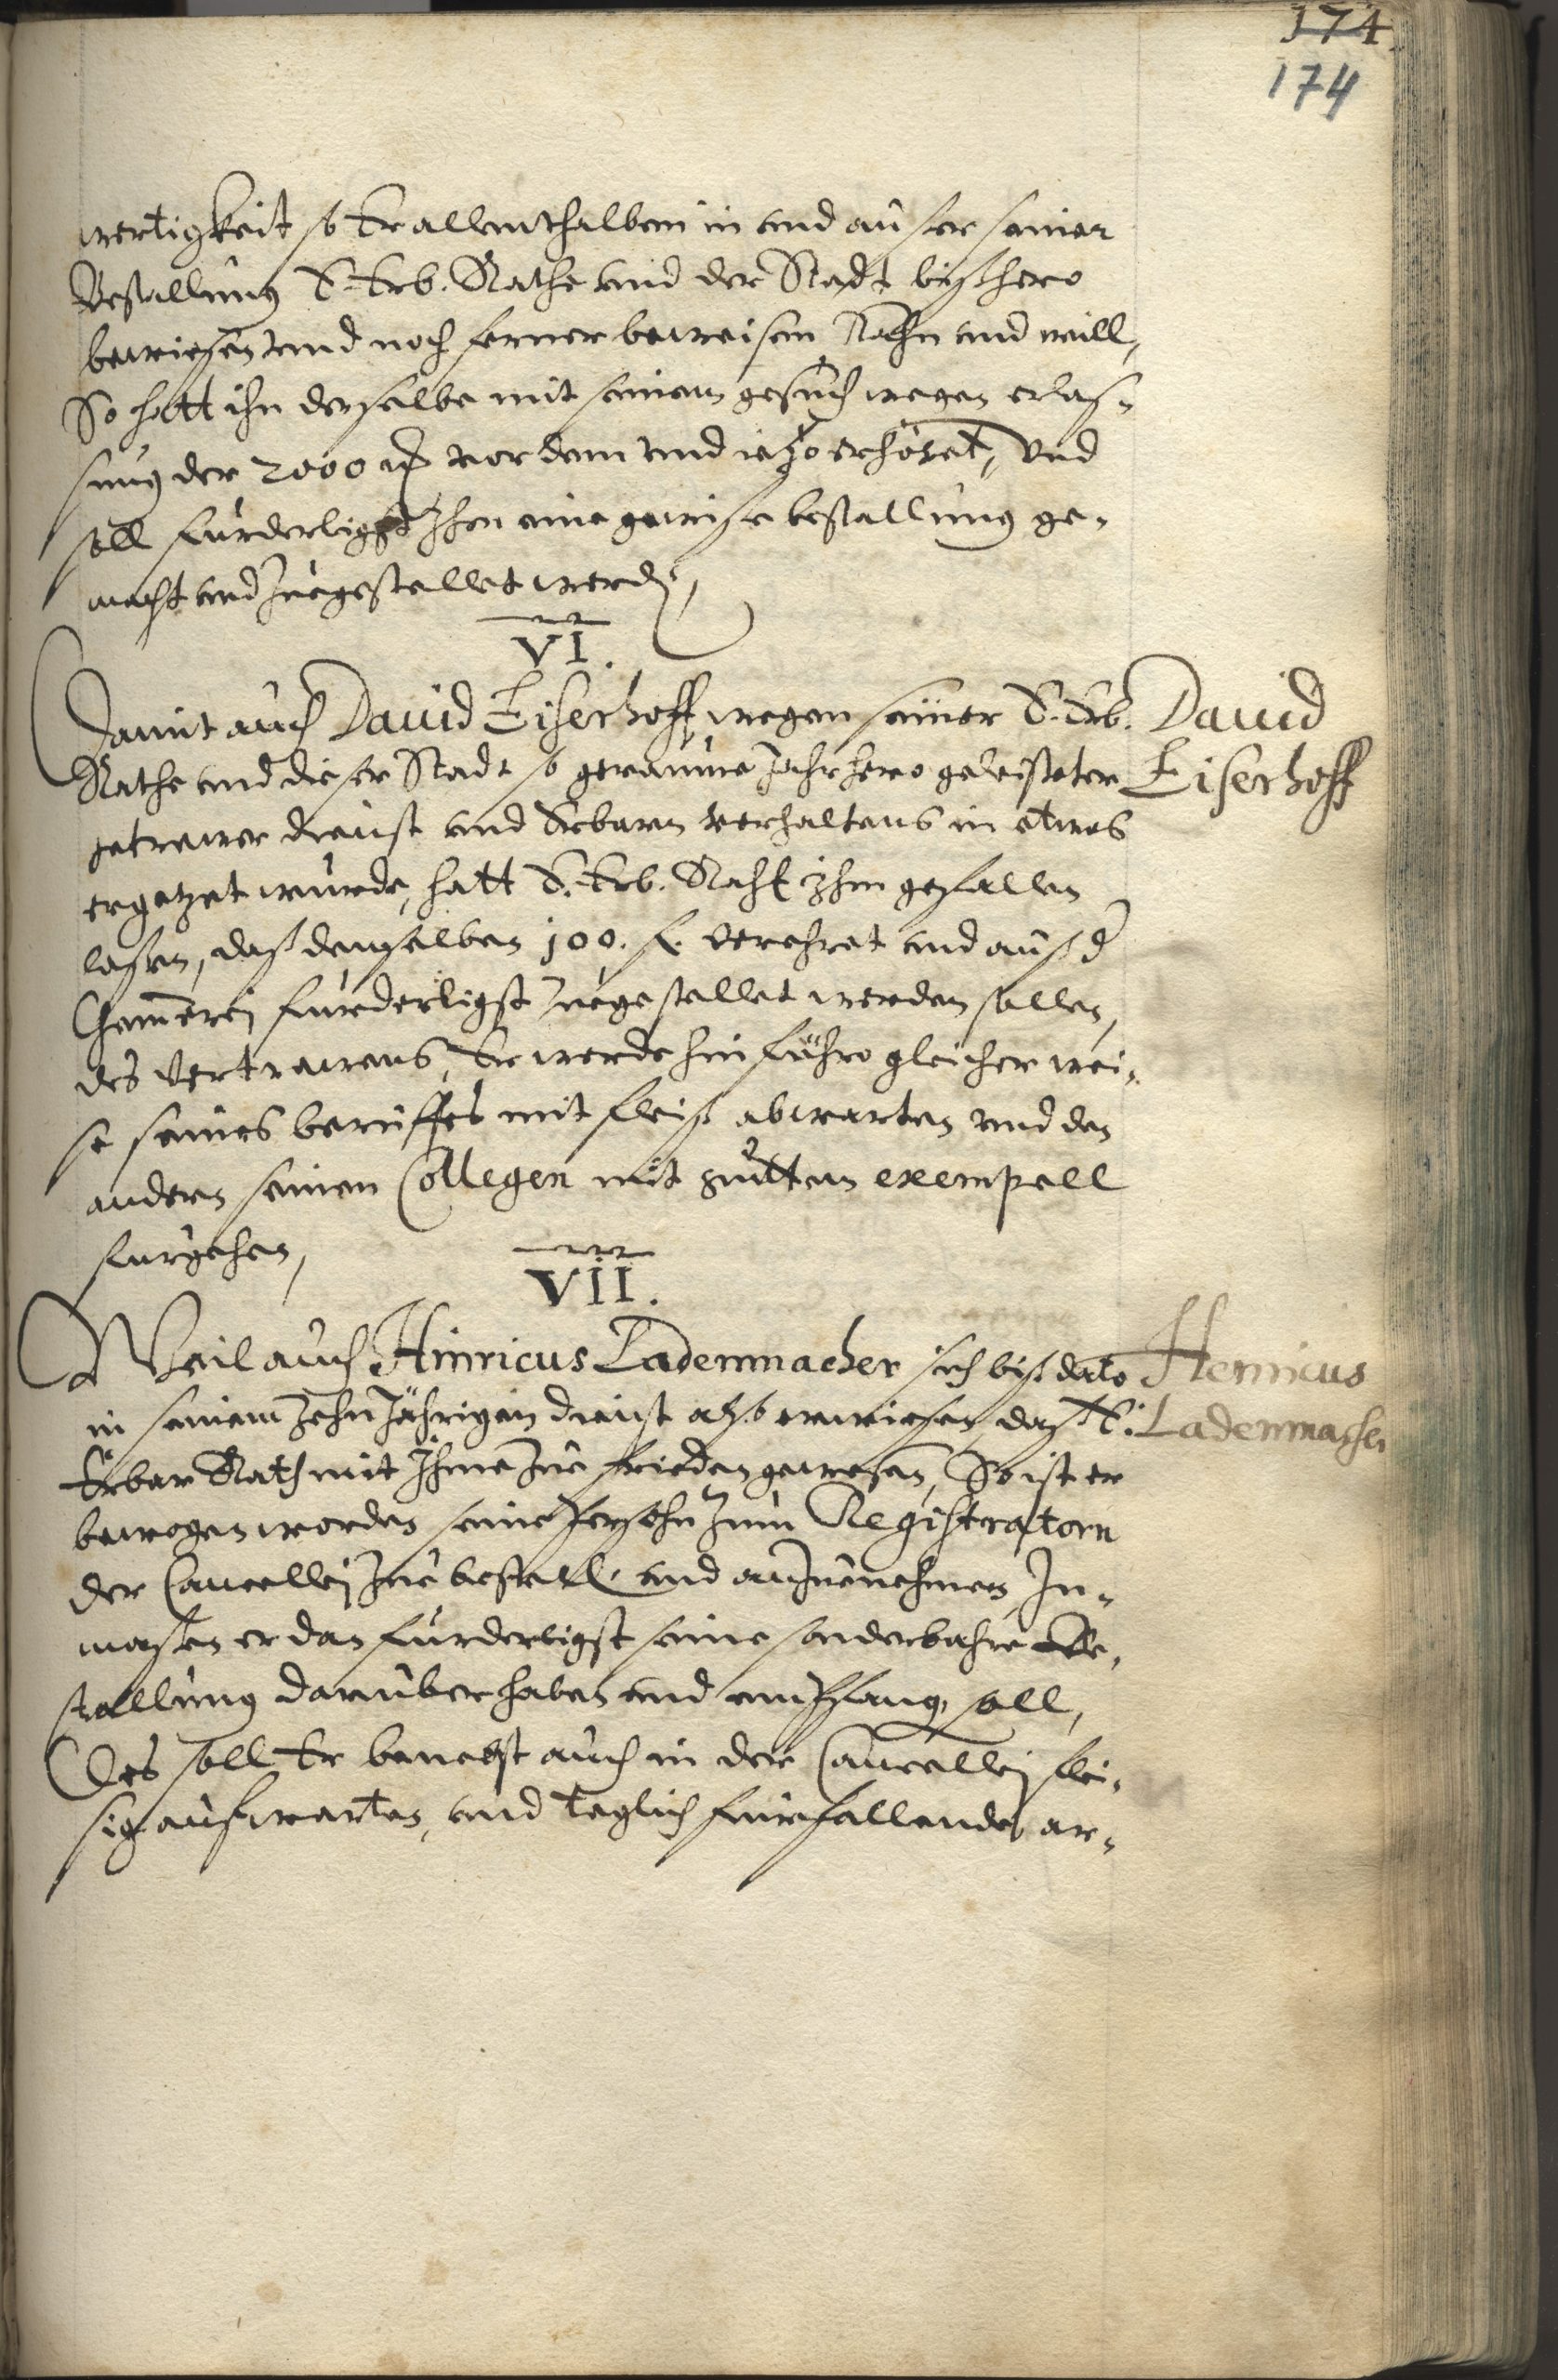 174.
174
wertigkeit so Er allenthalben in und außer seiner
Bestallung E. Erb. Rathe und der Stadt bißhero
bewiesen und noch ferner beweisen kan und will,
So hatt ihn derselbe mit seinem gesuch wegen erlaß-
sung der 2000 vor dem und ietzo erhöret, und
soll furderligst Ihm eine gewiße bestallung ge-
macht und zugestellet werden,
VI.
Damit auch David Eiserhoff wegen seiner E. Erb.
Rathe und dieser Stadt so geraume Jahr hero geleisteter
getrewer dienst und Erbarn verhaltens in etwas
ergetzet wurde, hatt E. Erb. Raht ihm gefallen
laßen, daß demselben 100. f. verehret und auß d
Cammerej furderligst zugestellet werden sollen,
des vertrawens, Er werde hinführo gleicher wei-
se seines beruffes mit fleiß abwarten und den
andern seinen Collegen mit gutten exempell
furgehen,
David
Eiserhoff
VII.
Weil auch Hinricus Ladenmacher sich biß dato
in seinem Zehn Jährigen dienst also erwiesen, daß E.
Erbar Rath mit Ihme zu frieden gewesen, So ist er
bewogen worden seine Persohn zum Registratorn
der Cancellej zu bestell. und anzunehmen, In-
maßen er dan furderligst seine sonderbahre Be-
stallung daruber haben und empfang. soll,
Des soll Er benebst auch in der Cancellej flei-
sig aufwarten, und teglich furfallende ar-
Henricus
Ladenmacher